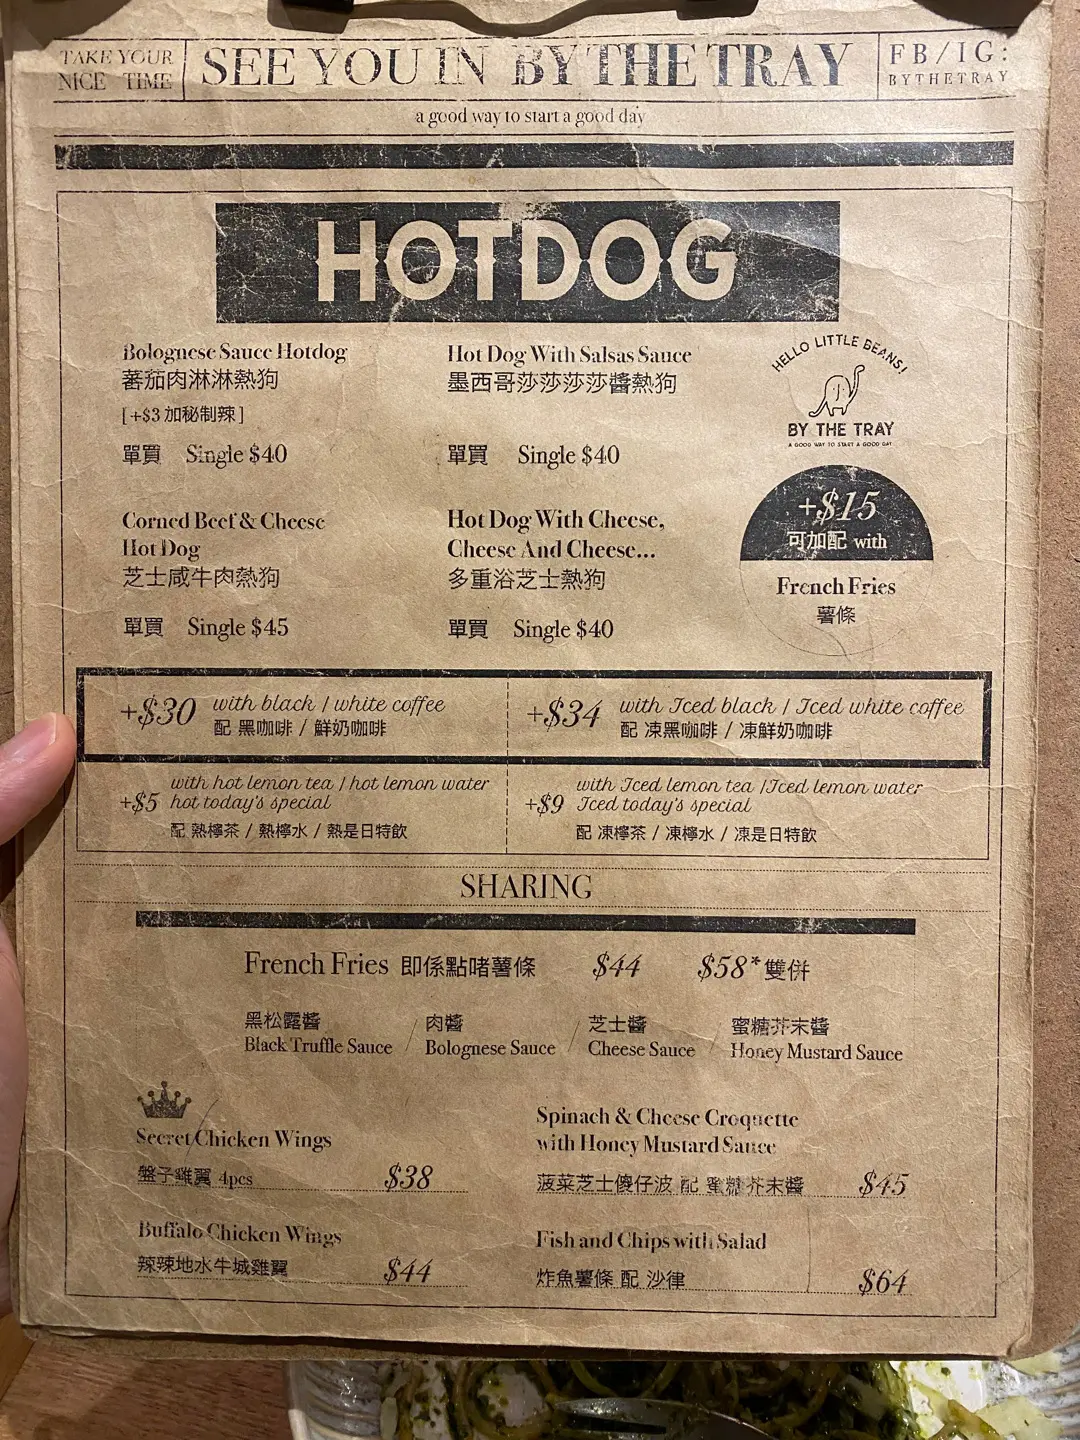 TAKE YOUR
NICE TIME
SEE YOU IN BY THE TRAY
FB/IG:
BYTHETRAY
a good way to start a good day
HOTDOG
Bolognese Sauce Hotdog
蕃茄肉淋淋熱狗
[+$3 加秘制辣]
單買 Single $40
Hot Dog With Salsas Sauce
墨西哥莎莎莎莎醬熱狗
單買 Single $40
HELLO LITTLE BEANS!
BY THE TRAY
A GOOD WAY TO START A GOOD DAY
Corned Beef & Cheese
Hot Dog
芝士咸牛肉熱狗
單買 Single $45
Hot Dog With Cheese,
Cheese And Cheese...
多重浴芝士熱狗
單買 Single $40
+$15
可加配 with
French Fries
薯條
+$30 with black / white coffee
配 黑咖啡 / 鮮奶咖啡
+$34 with Iced black / Iced white coffee
配 凍黑咖啡 / 凍鮮奶咖啡
with hot lemon tea / hot lemon water
+$5 hot today's special
配 熱檸茶 / 熱檸水 / 熱是日特飲
with Iced lemon tea /Iced lemon water
+$9 Iced today's special
配 凍檸茶 / 凍檸水 / 凍是日特飲
SHARING
French Fries 即係點啫薯條 $44 $58*雙併
黑松露醬 / 肉醬 / 芝士醬 / 蜜糖芥末醬
Black Truffle Sauce Bolognese Sauce Cheese Sauce Honey Mustard Sauce
Secret Chicken Wings
盤子雞翼 4pcs $38
Spinach & Cheese Croquette
with Honey Mustard Sauce
菠菜芝士傻仔波 配 蜜糖芥末醬 $45
Buffalo Chicken Wings
辣辣地水牛城雞翼 $44
Fish and Chips with Salad
炸魚薯條 配 沙律 $64